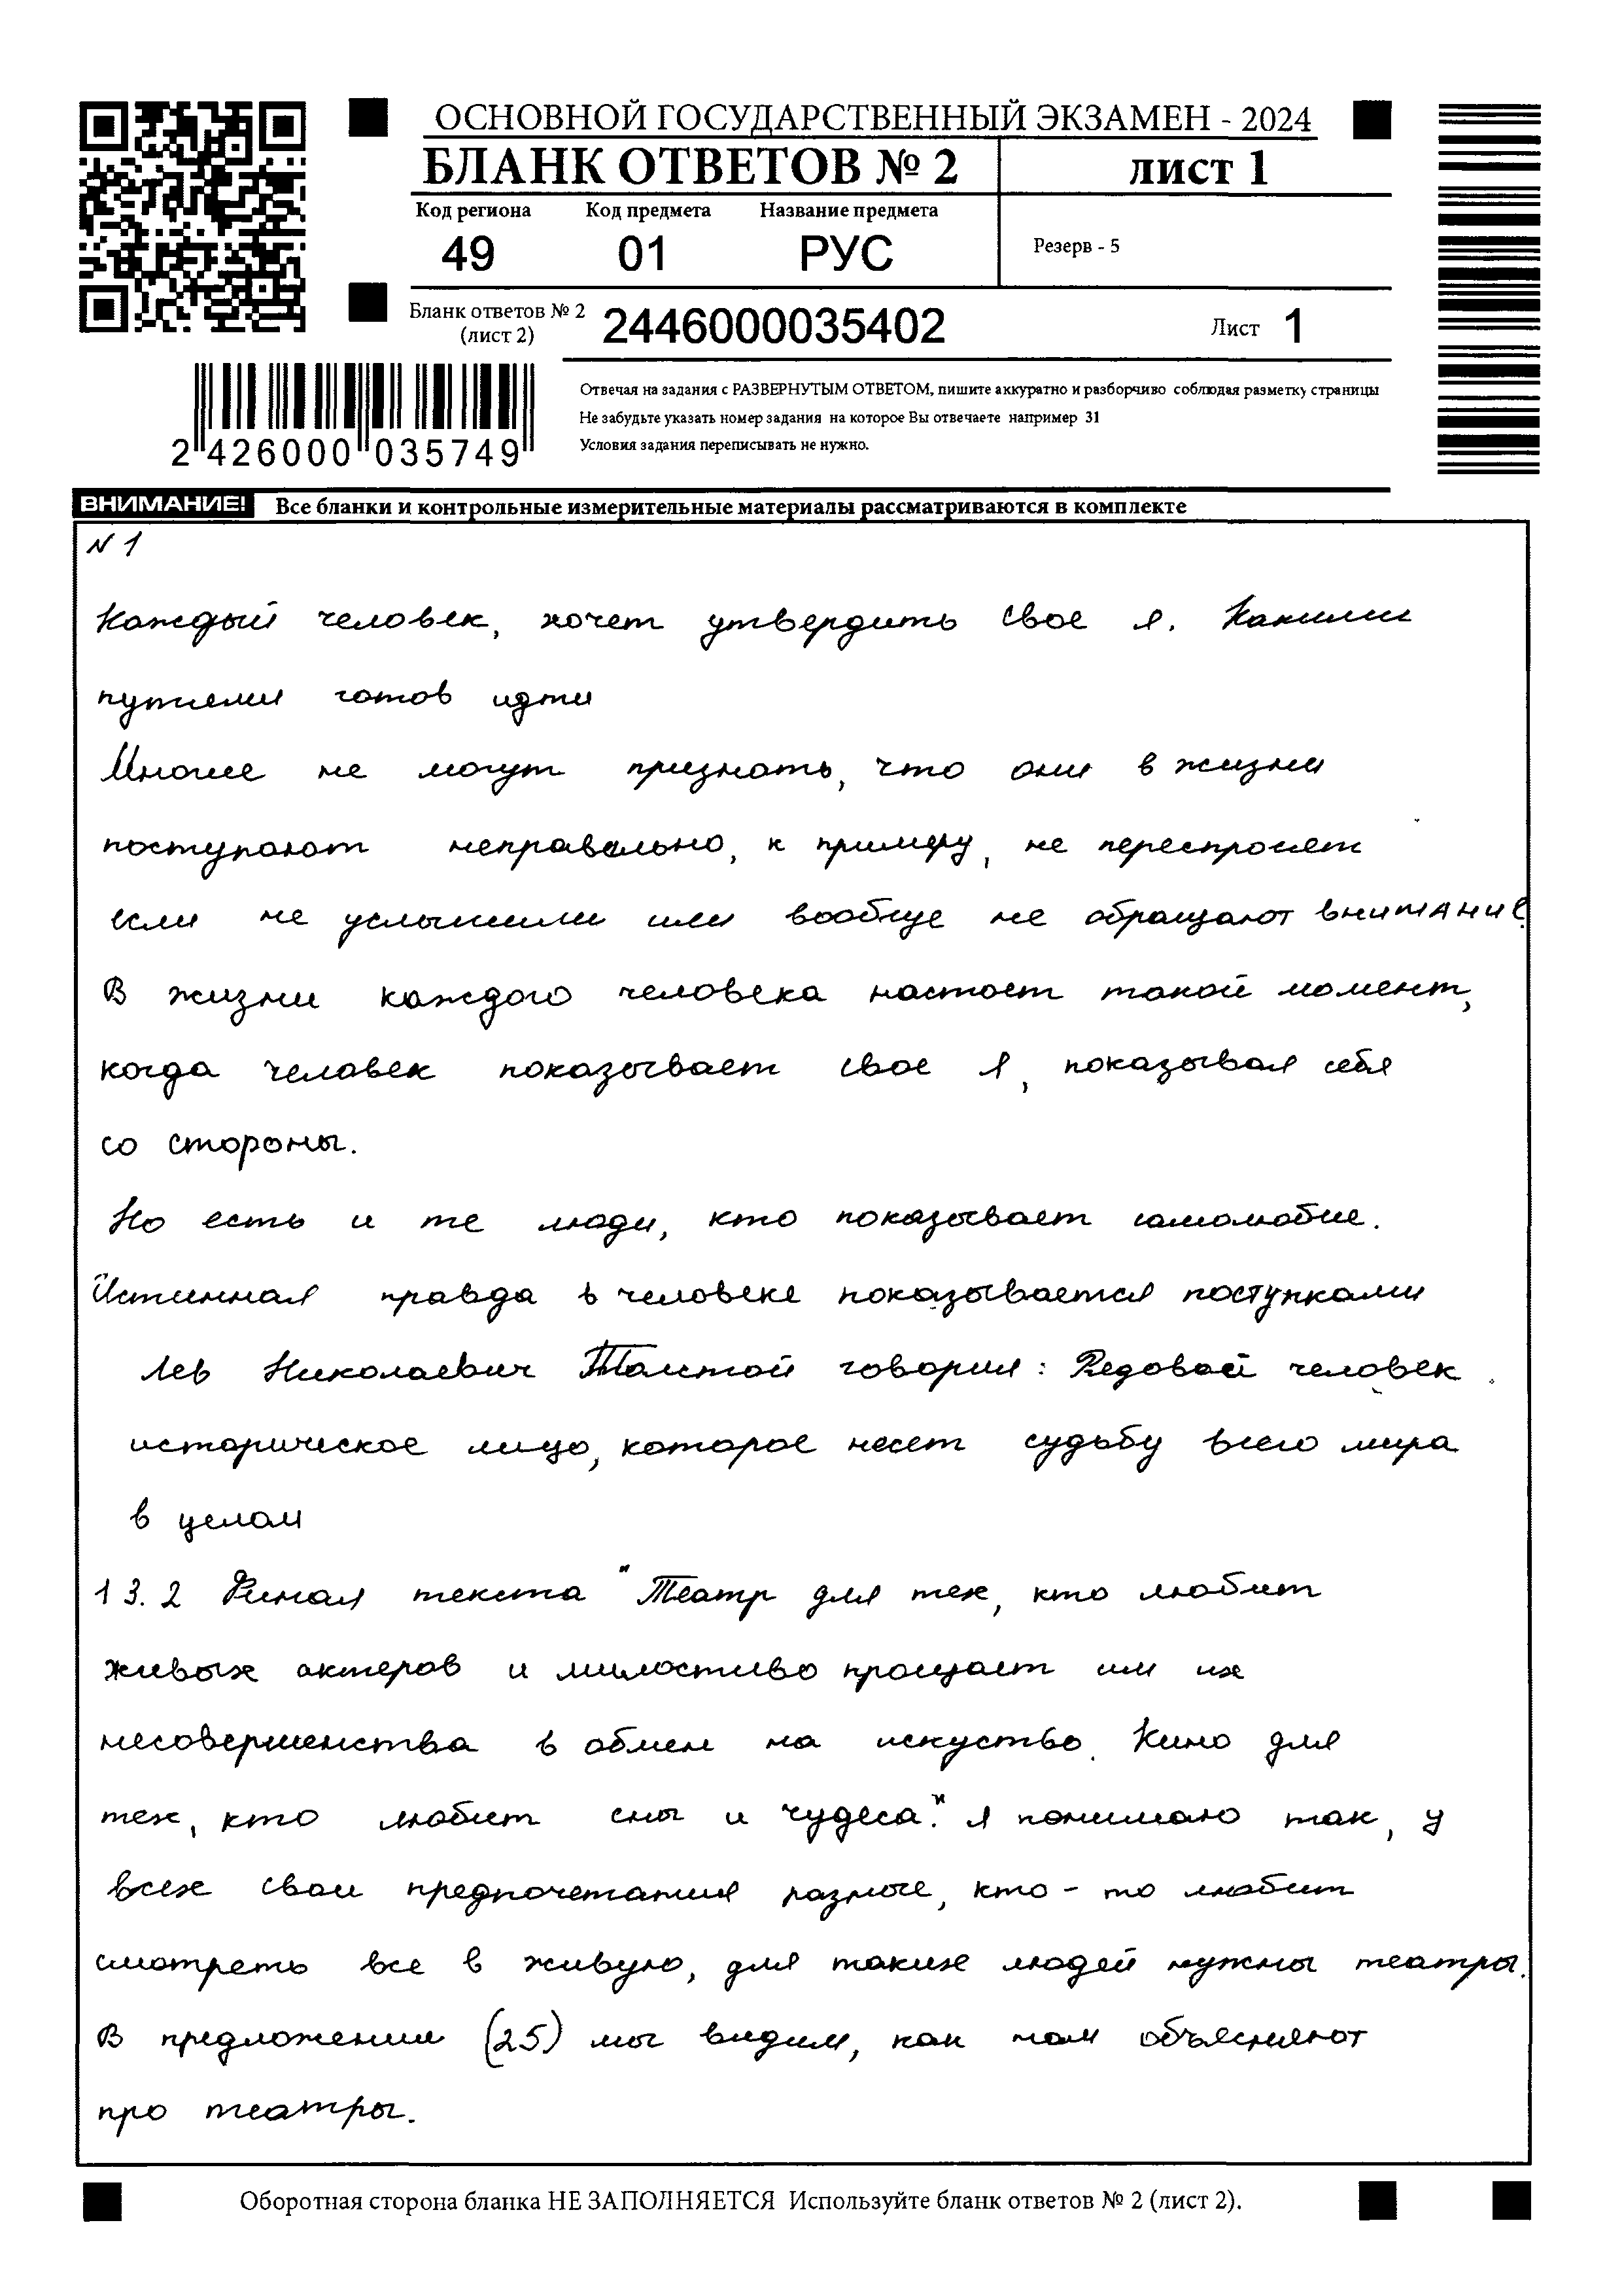 ОСНОВНОЙ ГОСУДАРСТВЕННЫЙ ЭКЗАМЕН - 2024
БЛАНК ОТВЕТОВ № 2 лист 1
Код региона Код предмета Название предмета
49 01 РУС
Резерв - 5
Бланк ответов № 2
(лист 2)
2446000035402
Лист 1
Отвечая на задания с РАЗВЕРНУТЫМ ОТВЕТОМ, пишите аккуратно и разборчиво соблюдая разметку страницы
Не забудьте указать номер задания на которое Вы отвечаете например 31
Условия задания переписывать не нужно.
2 426000 035749
ВНИМАНИЕ! Все бланки и контрольные измерительные материалы рассматриваются в комплекте
N 1
Каждый человек, хочет утвердить свое я. Какими
путиеми готов идти
Многие не могут признать, что они в жизни
поступают неправильно, к примеру, не переспросят
если не услышали или вообще не обращают внимание.
В жизни каждого человека настоет такой момент,
когда человек показывает свое я, показывая себя
со стороны.
Но есть и те люди, кто показывает самолюбие.
Истинная правда в человеке показывается поступками
Лев Николаевич Толстой говорил: Редовой человек
историческое лицо, которое несет судьбу всего мира
в целом
13.2 Финал текста "Театр для тех, кто любит
живых актеров и милостиво прощает им их
несовершенства в обмен на искуство. Кино для
тех, кто любит сны и чудеса." я понимаю так, у
всех свои предпочетания разные, кто-то любит
смотреть все в живую, для таких людей нужны театры.
В предложении (25) мы видим, как нам объясняют
про театры.
Оборотная сторона бланка НЕ ЗАПОЛНЯЕТСЯ Используйте бланк ответов № 2 (лист 2).